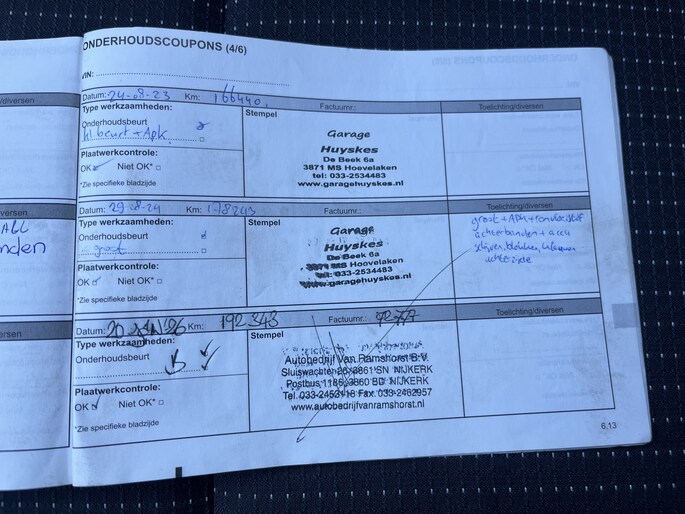 ONDERHOUDSCOUPONS (4/6)
VIN:
/diversen
Datum: 24-08-23 Km: 166440. Factuurnr.: Toelichting/diversen
Type werkzaamheden:
Onderhoudsbeurt
kl beurt + Apk.
Plaatwerkcontrole:
OK Niet OK*
*Zie specifieke bladzijde
Stempel
Garage
Huyskes
De Beek 6a
3871 MS Hoevelaken
tel: 033-2534483
www.garagehuyskes.nl
versen
nden
Datum: 29-8-24 Km: 178243 Factuurnr.: Toelichting/diversen
Type werkzaamheden:
Onderhoudsbeurt
groot
Plaatwerkcontrole:
OK Niet OK*
*Zie specifieke bladzijde
Stempel
Garage
Huyskes
De Beek 6a
3871 MS Hoevelaken
tel: 033-2534483
www.garagehuyskes.nl
groot + APK + remvloeistof
achterbanden + accu
achterzijde
ersen
Datum: 20 JAN '26 Km: 192.343 Factuurnr.: Toelichting/diversen
Type werkzaamheden:
Onderhoudsbeurt
Plaatwerkcontrole:
OK Niet OK*
*Zie specifieke bladzijde
Stempel
Autobedrijf Van Ramshorst B.V.
Sluiswachter 26, 3861 SN NIJKERK
Postbus 1186, 3860 BD NIJKERK
Tel. 033-2453418 Fax. 033-2462957
www.autobedrijfvanramshorst.nl
6.13